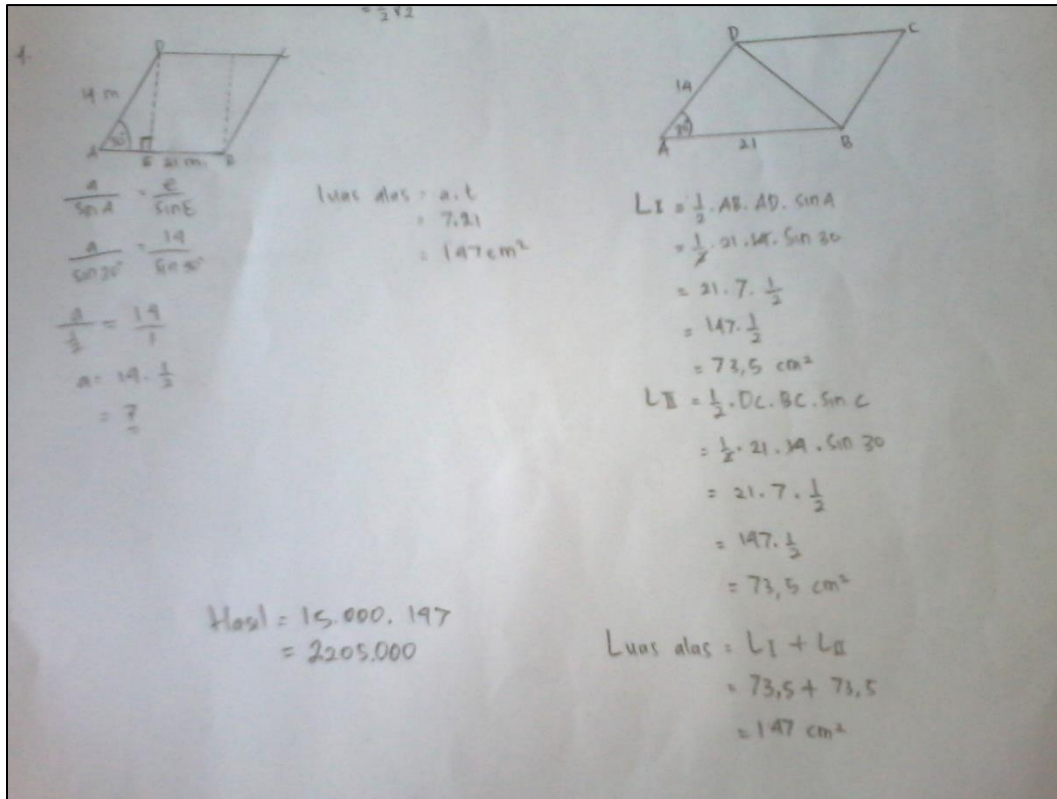 = 1/2 √2
1.
D
14 m
30°
A
E
21 m
B
a/sin A = e/sin E
a/sin 30° = 14/sin 90°
a/(1/2) = 14/1
a = 14 . 1/2
= 7
Luas alas = a.t
= 7.21
= 147 cm²
Hasil = 15.000. 147
= 2205.000
D
C
14
30°
A
21
B
L I = 1/2 . AB. AD. sin A
= 1/2 . 21 . 14. Sin 30
= 21. 7. 1/2
= 147. 1/2
= 73,5 cm²
L II = 1/2 . DC. BC. Sin C
= 1/2 . 21 . 14 . Sin 30
= 21. 7. 1/2
= 147. 1/2
= 73,5 cm²
Luas alas = L I + L II
= 73,5 + 73,5
= 147 cm²